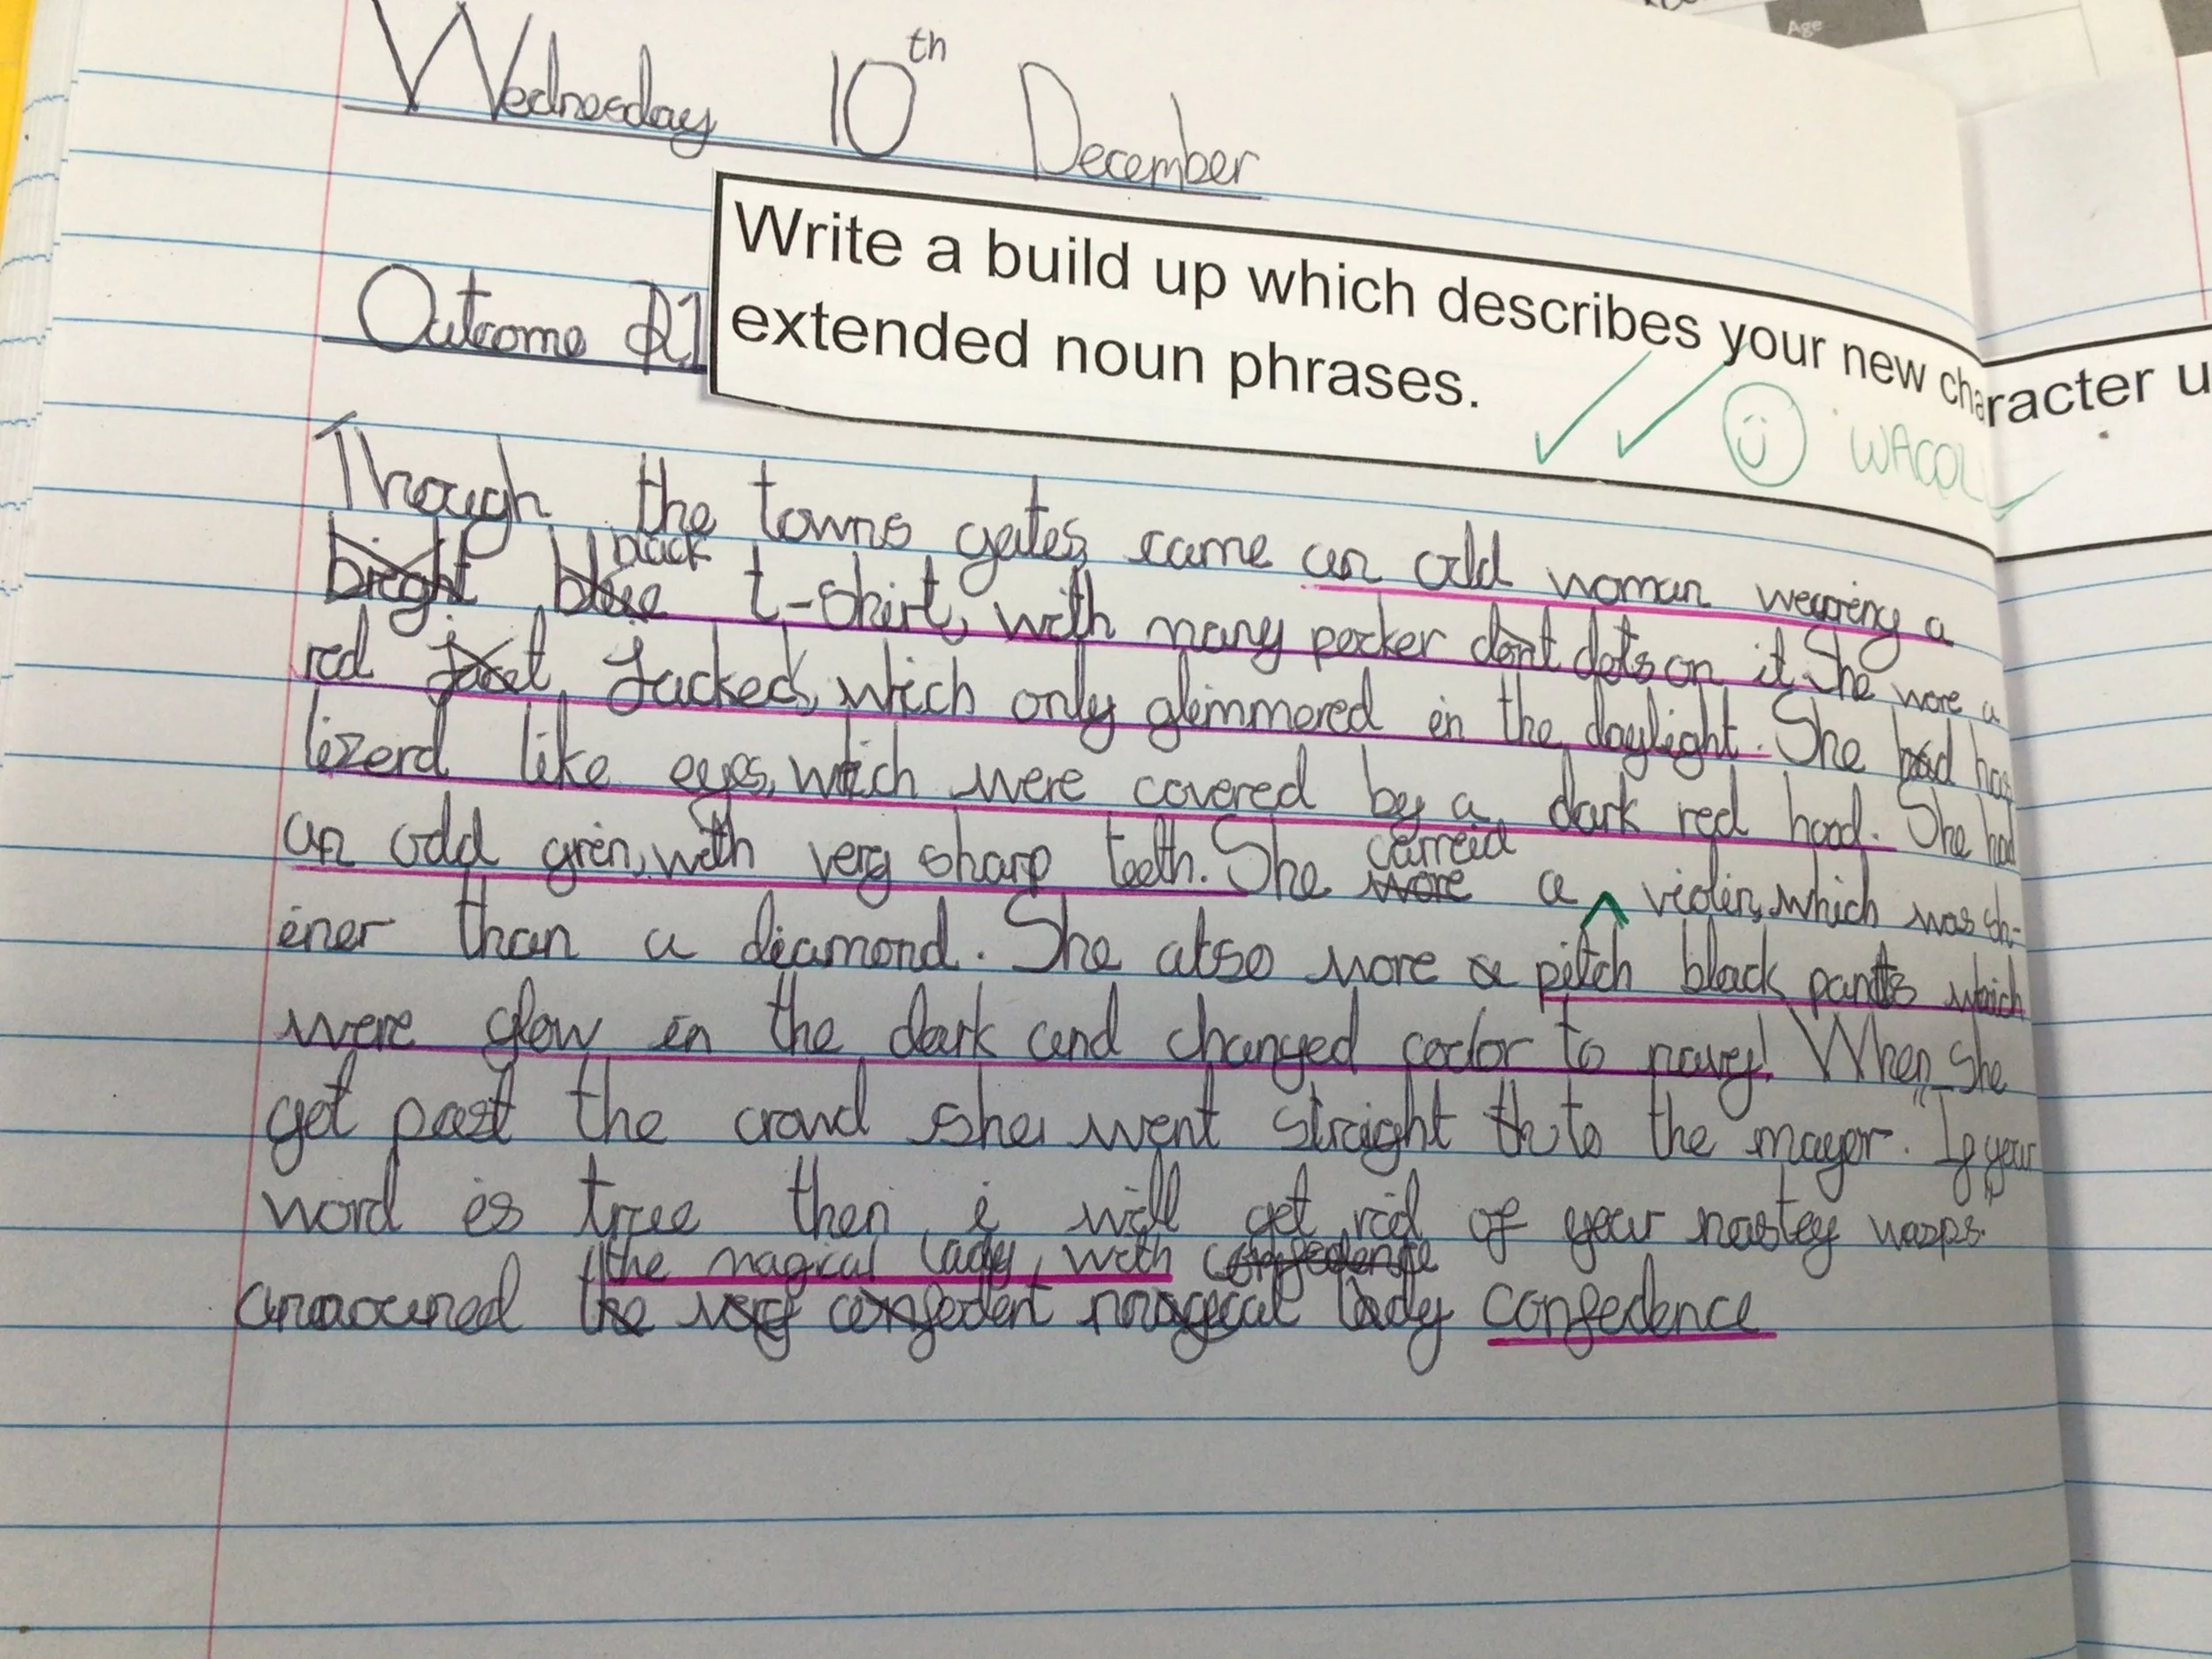 Age
Wednesday 10th December
Write a build up which describes your new character u
extended noun phrases.
Outcome
WAGOLL
Though the towns gates, came an odd woman wearing a
bright blue black t-shirt, with many pocker dont dots on it. She wore a
red Jacked, which only glimmered in the daylight. She had has
lizerd like eyes, which were covered by a dark red hood. She had
an odd grin, with very sharp teeth. She wore carreid a violin, which was sh-
iner than a diamond. She also wore a pitch black pants which
were glow in the dark and changed coolor to navy! When she
got past the crowd she went straight th to the mayor. "If your
word is true then i will get rid of your nastey wasps."
the magical lady, with confedence
announed the very confedent magecal lady confedence